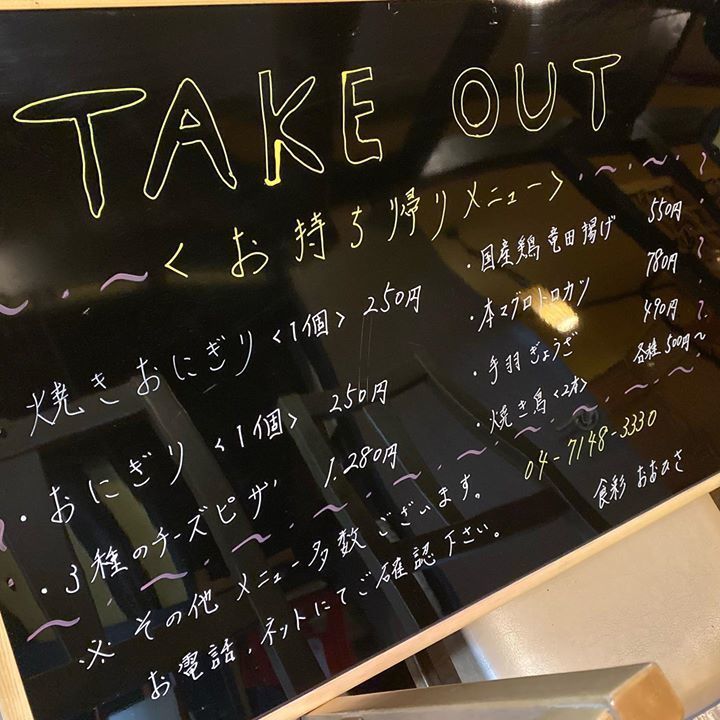 TAKE OUT
<お持ち帰りメニュー>
・焼きおにぎり<1個> 250円
・おにぎり<1個> 250円
・3種のチーズピザ 1.280円
・国産鶏竜田揚げ 550円
・本マグロトロカツ 780円
・手羽ぎょうざ 490円
・焼き鳥<2本> 各種500円～
※その他メニュー多数ございます。
お電話、ネットにてご確認下さい。
04-7148-3330
食彩 おおひさ